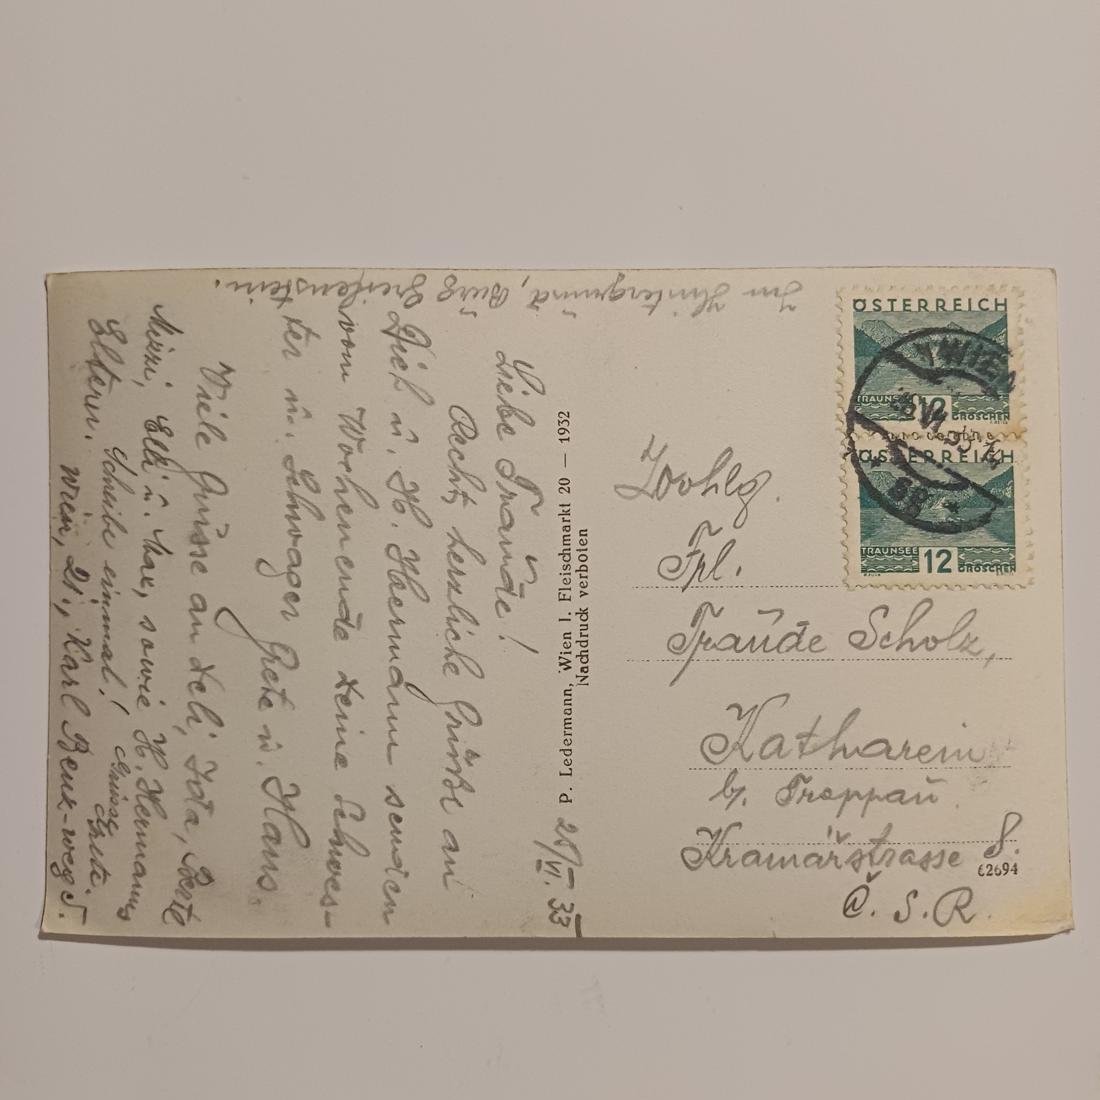 Im Hintergrund, Burg Greifenstein.
Liebe Traude!
Recht herzliche Grüße an
Dich u. H. Habermann senden
vom Wochenende Deine Schwes-
ter u. Schwager Grete u. Hans.
Viele Grüsse an Heli, Ida, Berta
Mizzi, Elli u. Max, sowie H. Hermanns
Eltern. Schreibe einmal! Grüsse Grete.
Wien, 21, Karl Benz-weg 5.
25/VI. 33
P. Ledermann, Wien I, Fleischmarkt 20 — 1932
Nachdruck verboten
ÖSTERREICH
WIEN
TRAUNSEE 12 GROSCHEN
ÖSTERREICH
TRAUNSEE 12 GROSCHEN
Frl.
Traude Scholz,
Katharein
b. Troppau
Kramářstrasse
Č. S. R.
62694